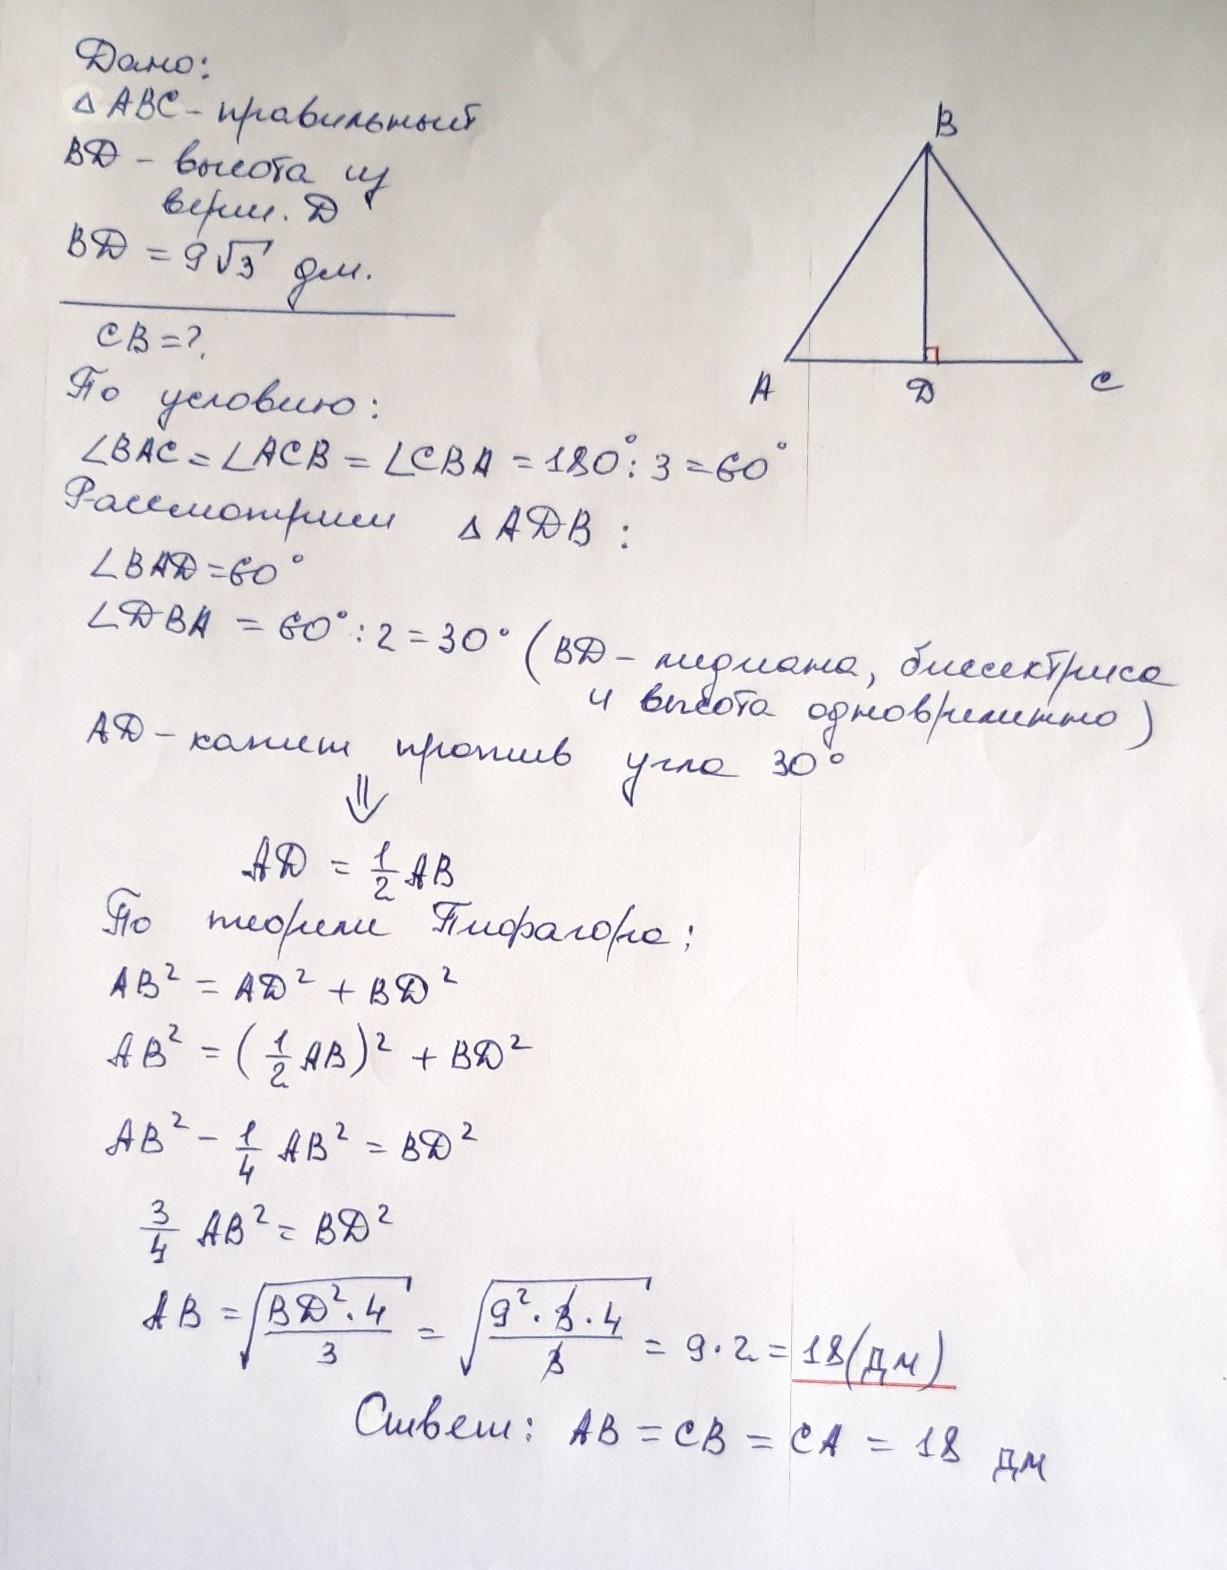 Дано:
△ ABC - правильный
BD - высота из
верш. D
BD = 9√3 дм.
CB = ?
B
A
D
C
По условию:
∠BAC = ∠ACB = ∠CBA = 180° : 3 = 60°
Рассмотрим △ ADB :
∠BAD = 60°
∠DBA = 60° : 2 = 30° (BD - медиана, биссектриса
и высота одновременно)
AD - катет против угла 30°
⇓
AD = 1/2 AB
По теореме Пифагора:
AB² = AD² + BD²
AB² = (1/2 AB)² + BD²
AB² - 1/4 AB² = BD²
3/4 AB² = BD²
AB = √(BD² · 4 / 3) = √(9² · 3 · 4 / 3) = 9 · 2 = 18 (дм)
Ответ: AB = CB = CA = 18 дм